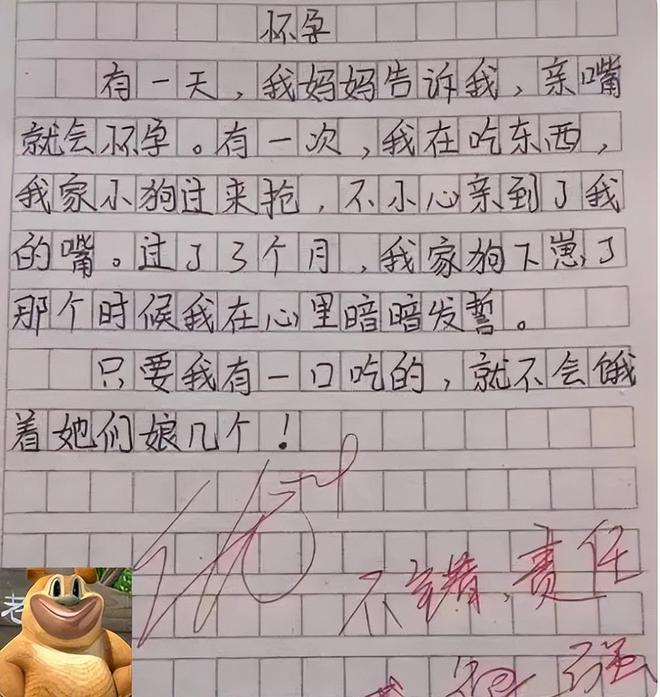 怀孕
有一天，我妈妈告诉我，亲嘴
就会怀孕。有一次，我在吃东西，
我家小狗过来抢，不小心亲到了我
的嘴。过了3个月，我家狗下崽了
那个时候我在心里暗暗发誓。
只要我有一口吃的，就不会饿
着她们娘几个！
不错，责任
强
老